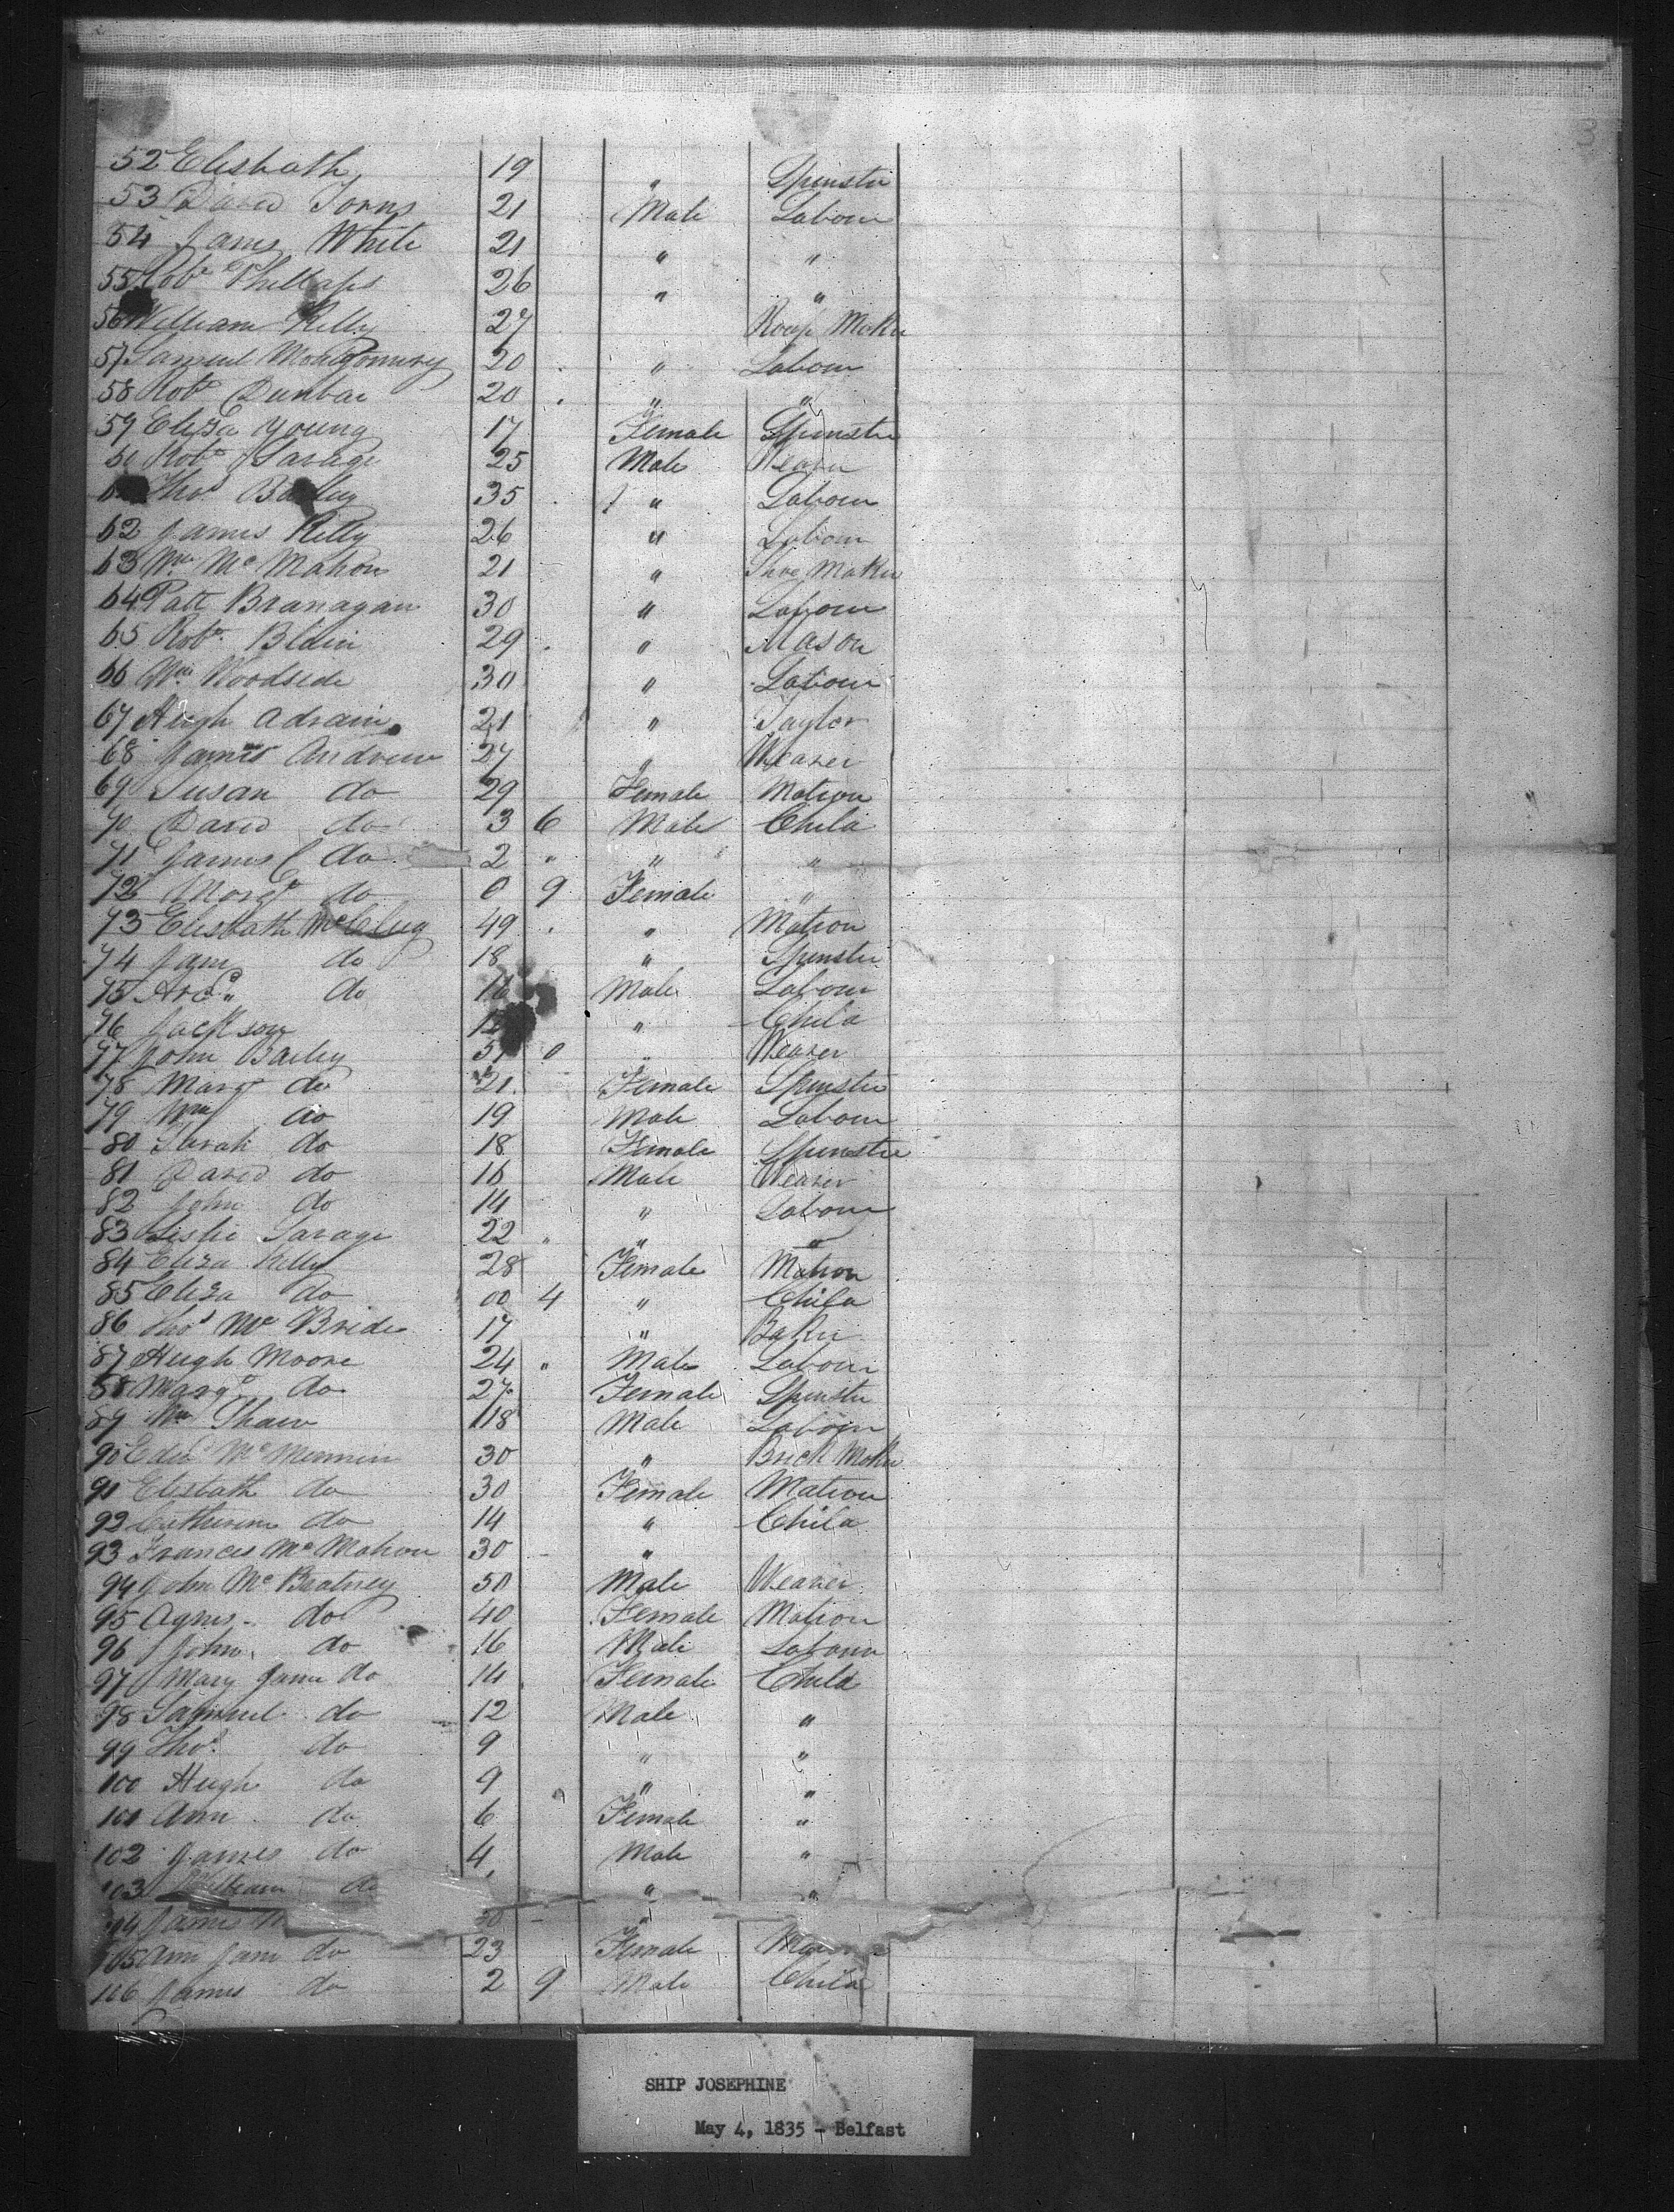 3
52 Elisbath 19 " Spinster
53 David Torns 21 Male Labour
54 James White 21 " "
55 Robt Phillaps 26 " "
56 William Kelly 27 Roap Maker
57 Samuel Montgomery 20 " Labour
58 Robt Dunbar 20 " "
59 Eliza Young 17 Female Spinster
60 Robt Savage 25 Male Weaver
Thos Bailey 35 " Labour
62 James Kelly 26 " Labour
63 Wm Mc Mahon 21 " Maker
64 Patt Branagan 30 " Labour
65 Robt Blain 29 " Mason
66 Wm Woodside 30 " Labour
67 Hugh Adrain 21 " Taylor
68 James Andrew 27 " Weaver
69 Susan do 29 Female Matron
70 David do 3 6 Male Child
71 James do 2 " " "
72 Margt do 0 9 Female "
73 Elisbath McClug 49 " Matron
74 Jane do 18 " Spinster
75 Arcd do 16 Male Labour
76 Jackson " Child
77 John Bailey 51 0 " Weaver
78 Margt do 21 Female Spinster
79 Wm do 19 Male Labour
80 Sarah do 18 Female Spinster
81 David do 16 Male Weaver
82 John do 14 " Labour
83 Leslie Savage 22 " " "
84 Eliza Kelly 28 Female Matron
85 Eliza do 00 4 " Child
86 Thos Mc Bride 17 " Baker
87 Hugh Moore 24 " Male Labour
88 Margt do 27 Female Spinster
89 Wm Shaw 18 Male Labour
90 Edwd Mc Mennin 30 " Brick Maker
91 Elisbath do 30 Female Matron
92 Catherine do 14 " Child
93 Frances Mc Mahon 30 "
94 John Mc Bratney 50 Male Weaver
95 Agnes do 40 Female Matron
96 John do 16 Male Labour
97 Mary Jane do 14 Female Child
98 Samuel do 12 Male "
99 Thos do 9 " "
100 Hugh do 9 " "
101 Ann do 6 Female "
102 James do 4 Male "
103 William do " "
104 James 30 "
105 Ann Jane do 23 Female
106 James do 2 9 Male Child
SHIP JOSEPHINE
May 4, 1835 - Belfast